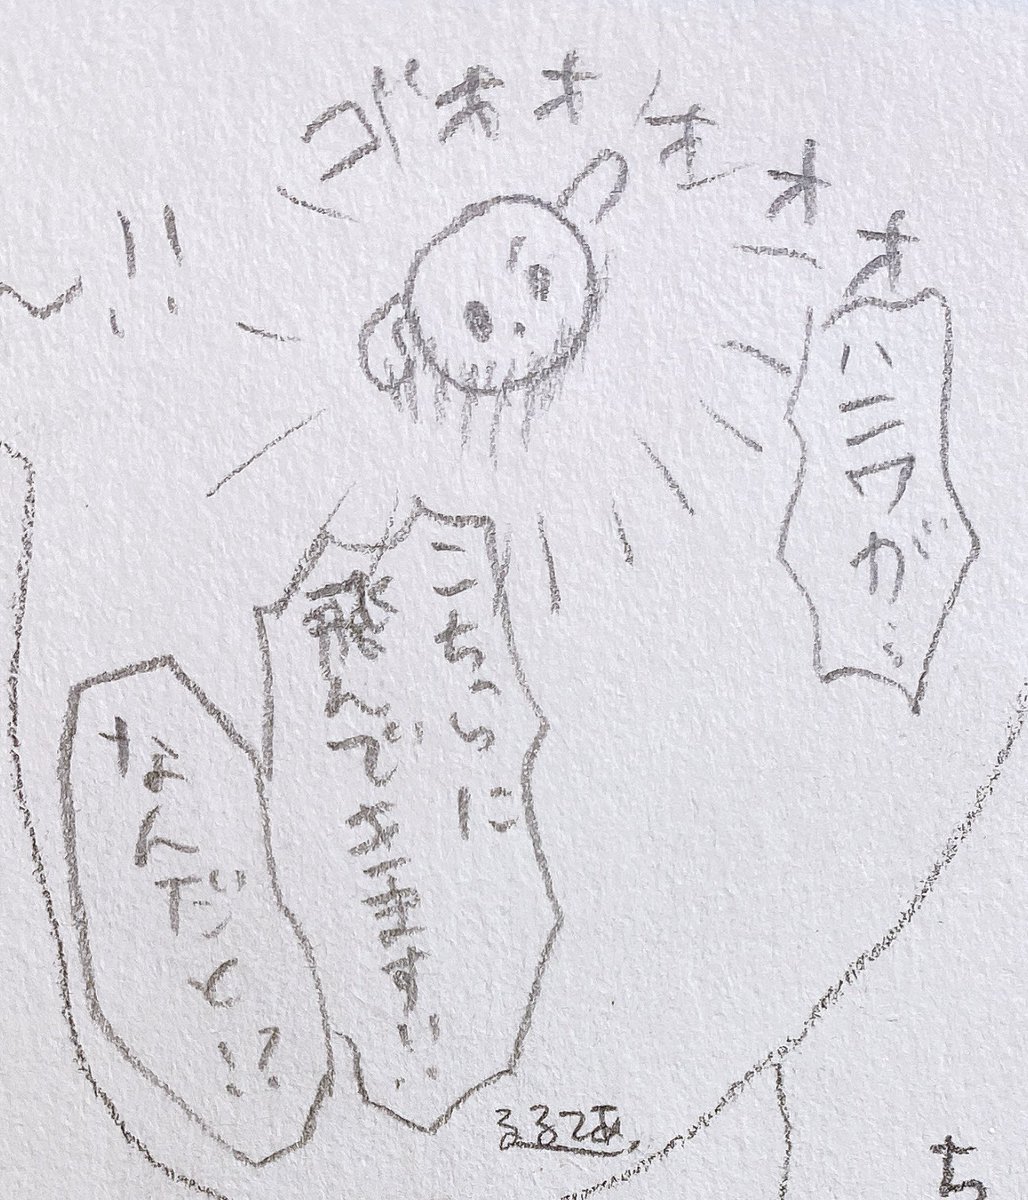 ゴオオオオオ
!!
ハニワが…
こちらに
飛んできます!!
なんだと!?
るるてあ
ち